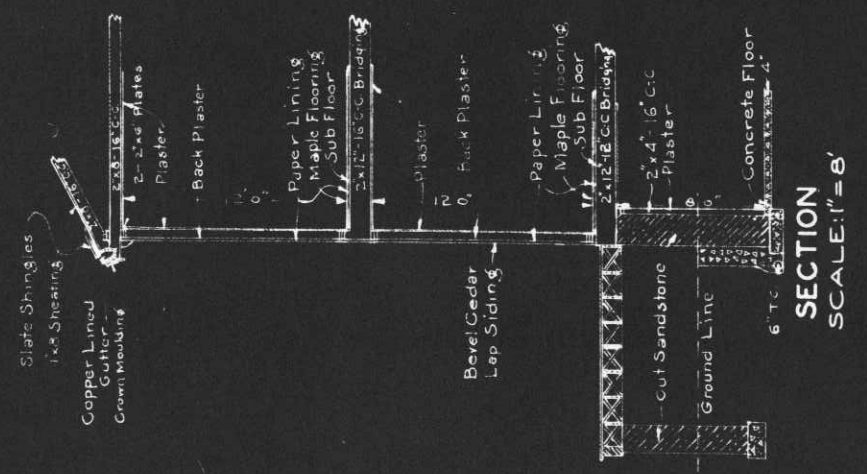 Slate Shingles
1x8 Sheating
Copper Lined
Gutter
Crown Moulding
2"x8"-16" C-C
2-2"x6" Plates
Plaster
Back Plaster
Paper Lining
Maple Flooring
Sub Floor
2"x12"-16" C-C Bridging
Plaster
Back Plaster
12
0"
Bevel Cedar
Lap Siding
Paper Lining
Maple Flooring
Sub Floor
2"x12"-12" C-C Bridging
2"x4"-16" C-C
Plaster
Cut Sandstone
Ground Line
Concrete Floor
4"
6" T.C.
SECTION
SCALE: 1"=8'